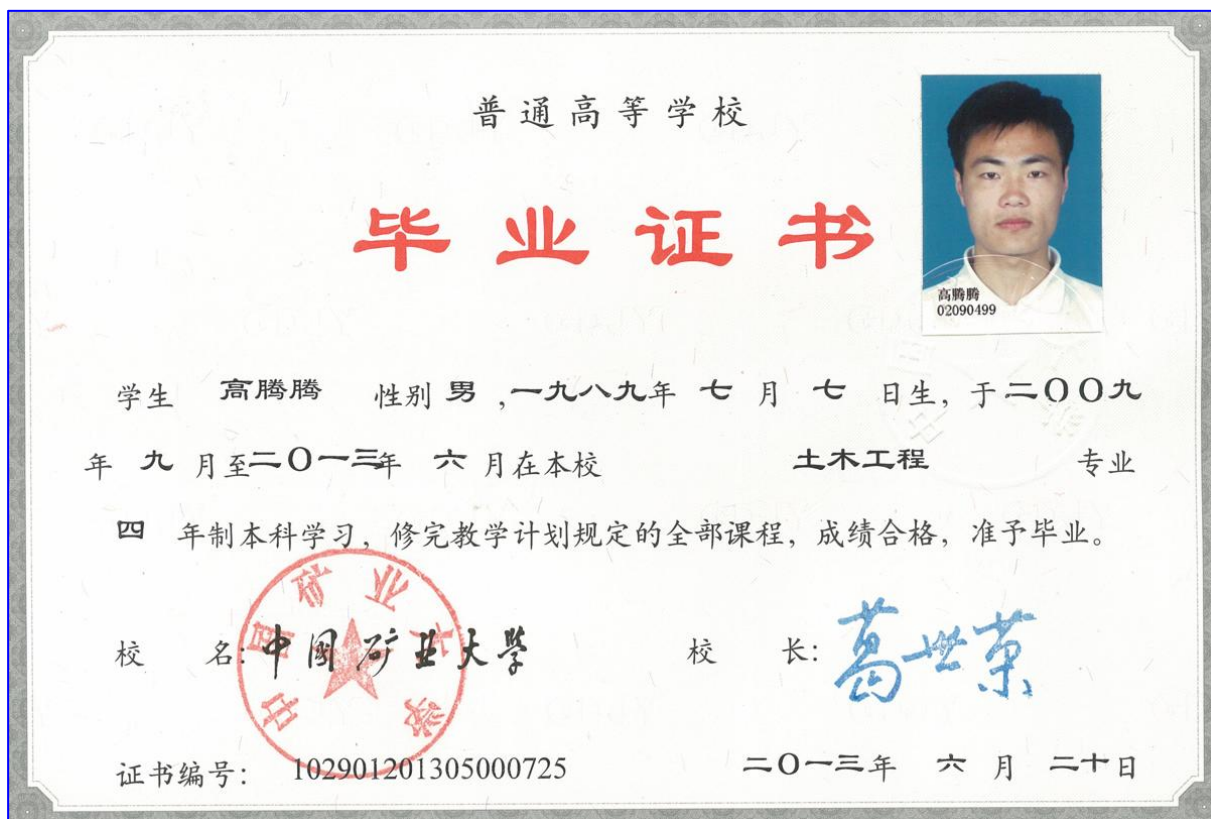 普通高等学校
毕业证书
高腾腾
02090499
学生 高腾腾 性别 男,一九八九年 七 月 七 日生,于二〇〇九
年 九 月至二〇一三年 六 月在本校 土木工程 专业
四 年制本科学习,修完教学计划规定的全部课程,成绩合格,准予毕业。
校 名:中国矿业大学 校 长:葛世荣
中国矿业大学
证书编号: 102901201305000725 二〇一三年 六 月 二十日